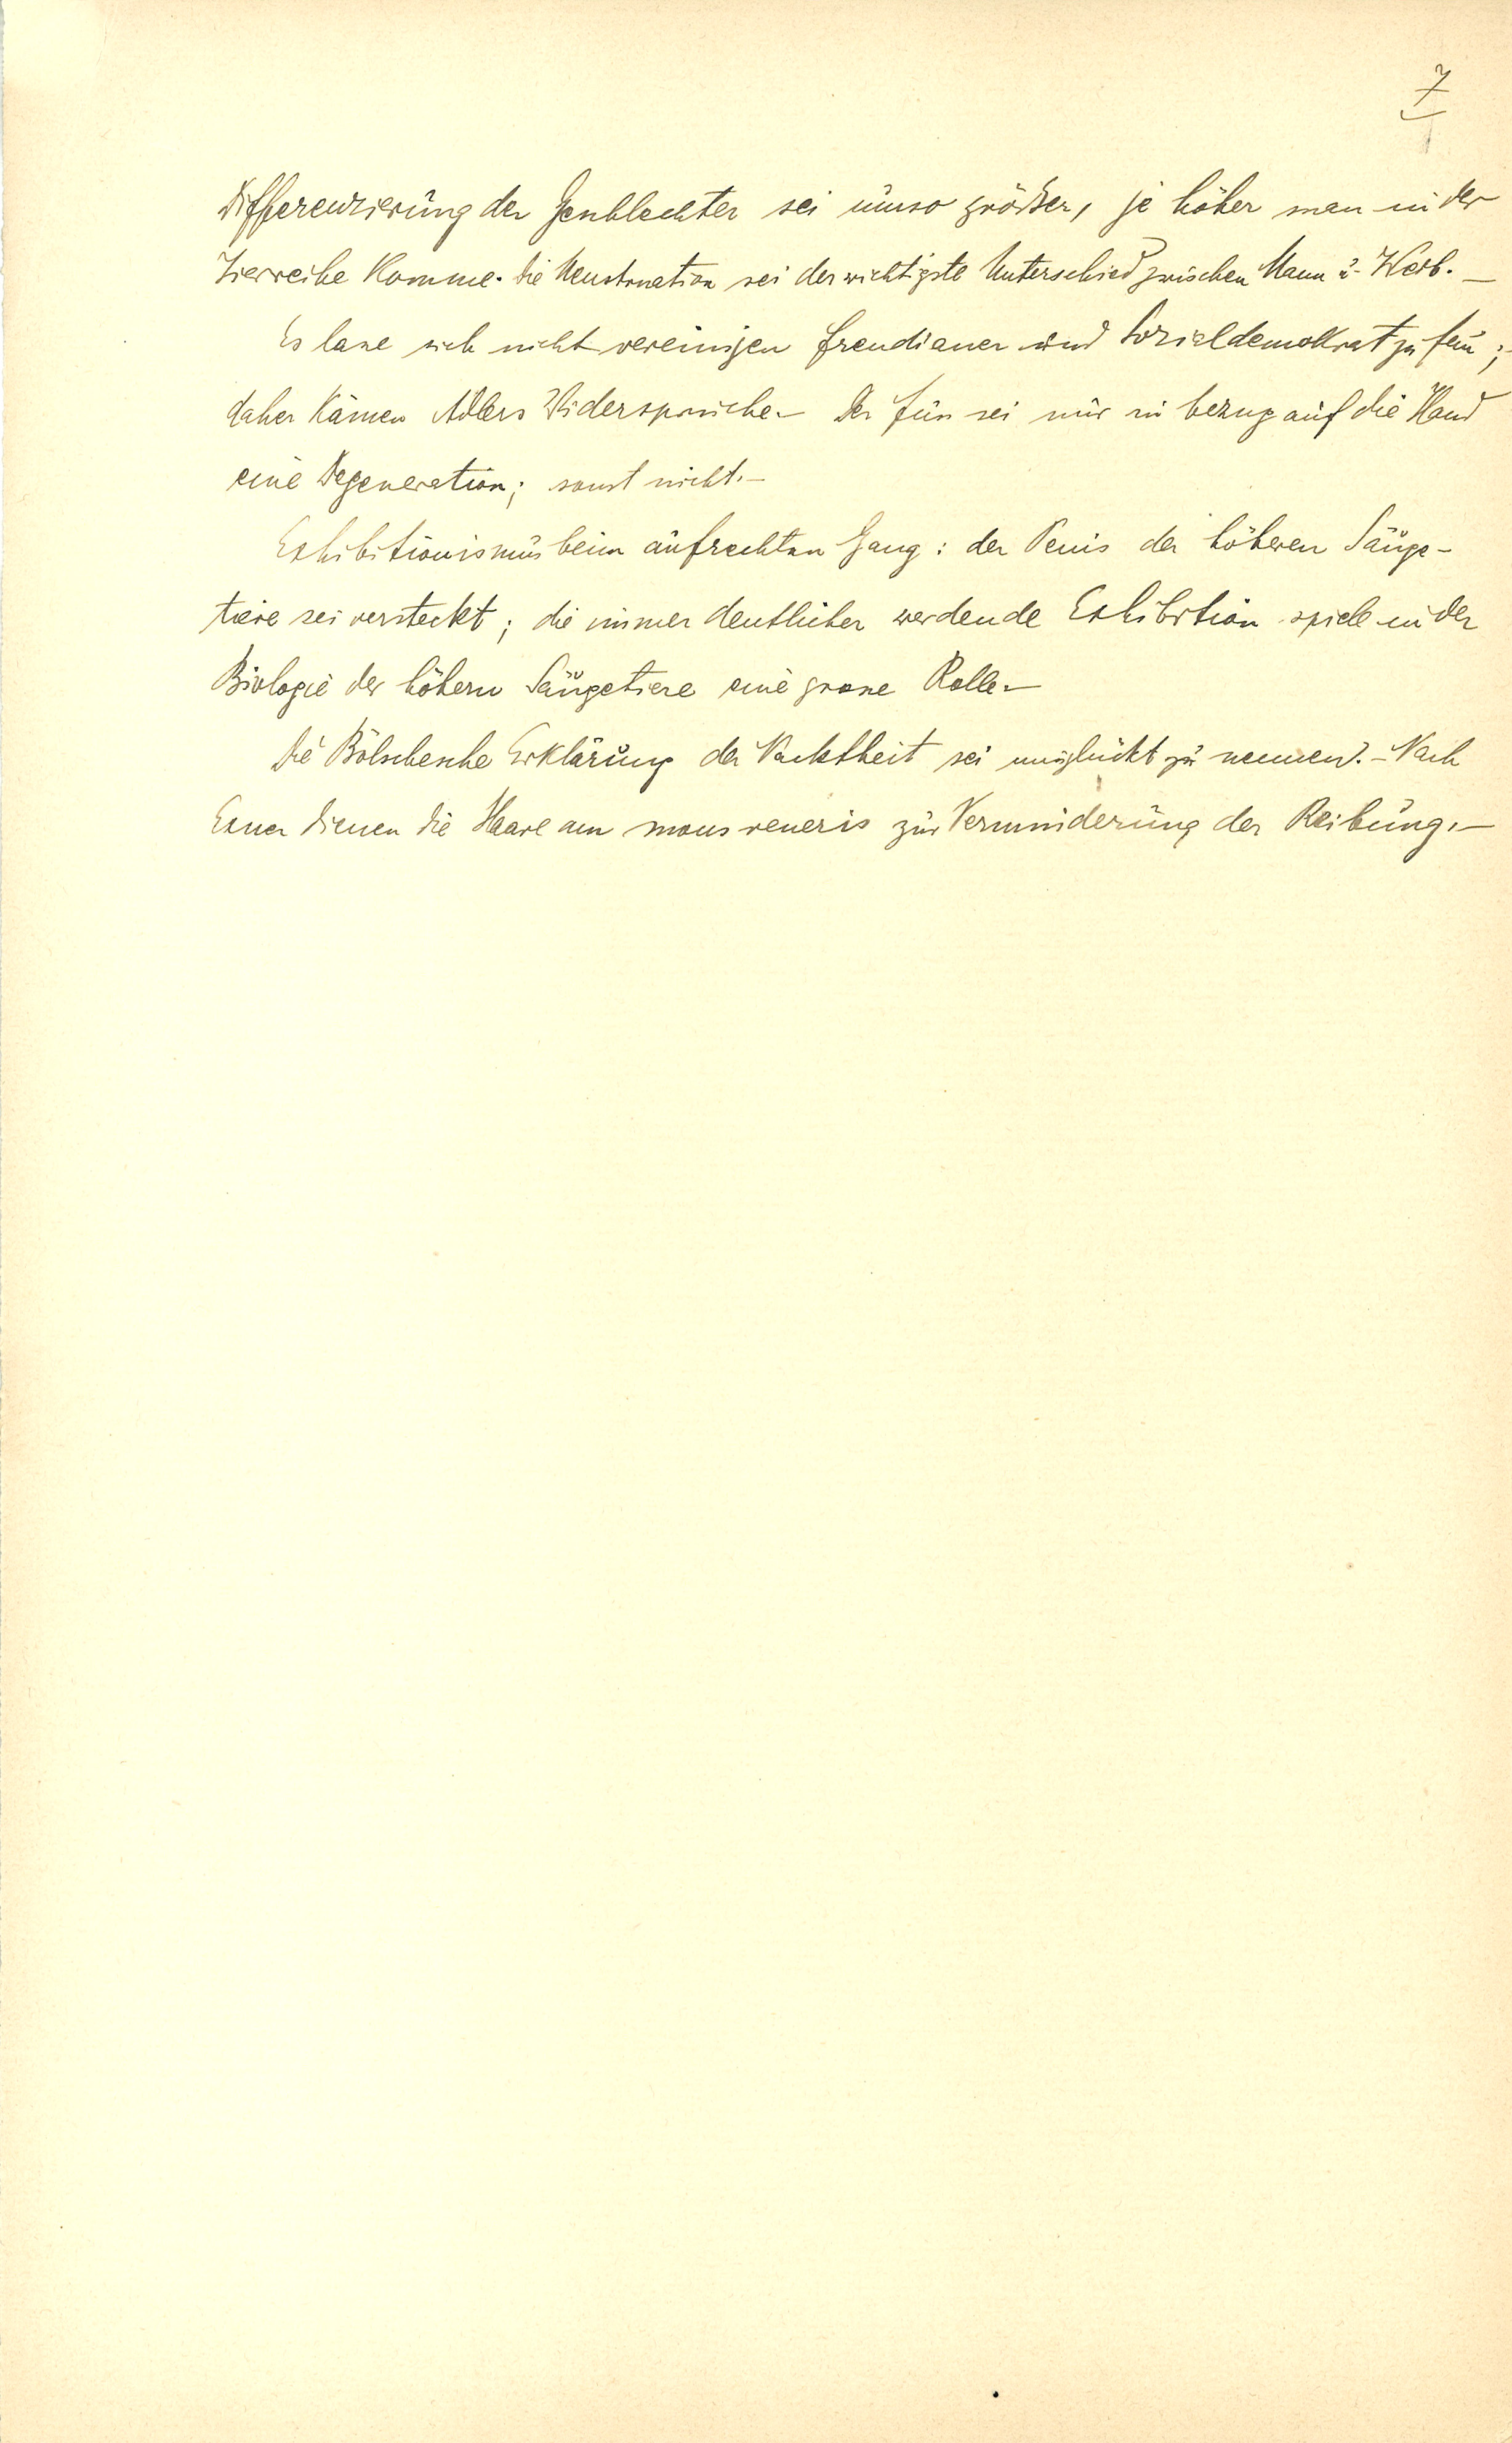 7
Differenzierung der Geschlechter sei umso größer, je höher man in der
Tierreihe komme. Die Menstruation sei der wichtigste Unterschied zwischen Mann u. Weib. —
Es lasse sich nicht vereinigen Freudianer und Sozialdemokrat zu sein;
daher kämen Adlers Widersprüche. — Der Fuss sei nur in bezug auf die Hand
eine Degeneration; sonst nicht. —
Exhibitionismus beim aufrechten Gang: der Penis der höheren Säuge-
tiere sei versteckt; die immer deutlicher werdende Exhibition spiele in der
Biologie der höhern Säugetiere eine grosse Rolle. —
Die Bölschesche Erklärung der Nacktheit sei missglückt zu nennen. — Nach
Exner dienen die Haare am mons veneris zur Verminderung der Reibung. —